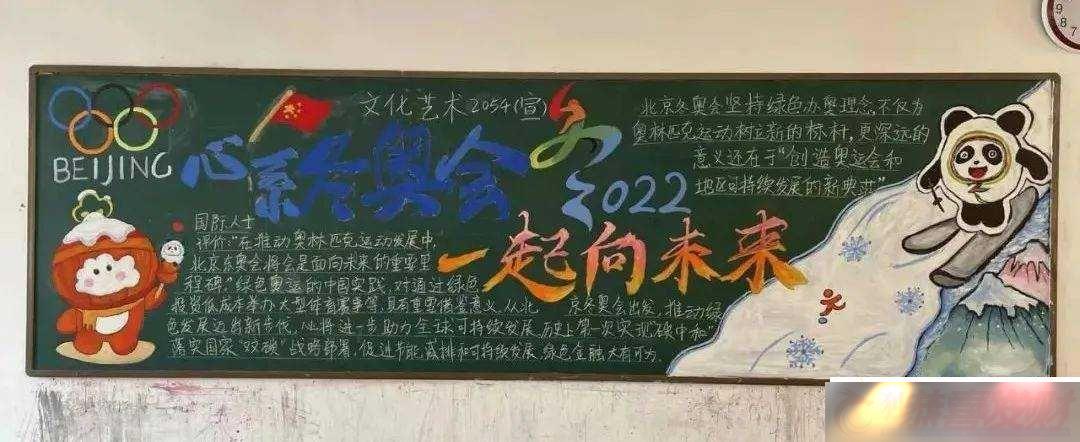 BEIJING
文化艺术2054(宣)
心系冬奥会
冬
2022
一起向未来
北京冬奥会坚持绿色办奥理念,不仅为
奥林匹克运动树立新的标杆,更深远的
意义还在于“创造奥运会和
地区可持续发展的新典范”
国际人士
评价:“在推动奥林匹克运动发展中,
北京冬奥会将会是面向未来的重要里
程碑”绿色奥运的中国实践,对通过绿色
投资低成本举办大型体育赛事等,具有重要借鉴意义.从北京冬奥会出发,推动绿
色发展迈出新步伐,必将进一步助力全球可持续发展,历史上第一次实现“碳中和”
落实国家“双碳”战略部署,促进节能减排和可持续发展,绿色金融大有可为.
9
8
7